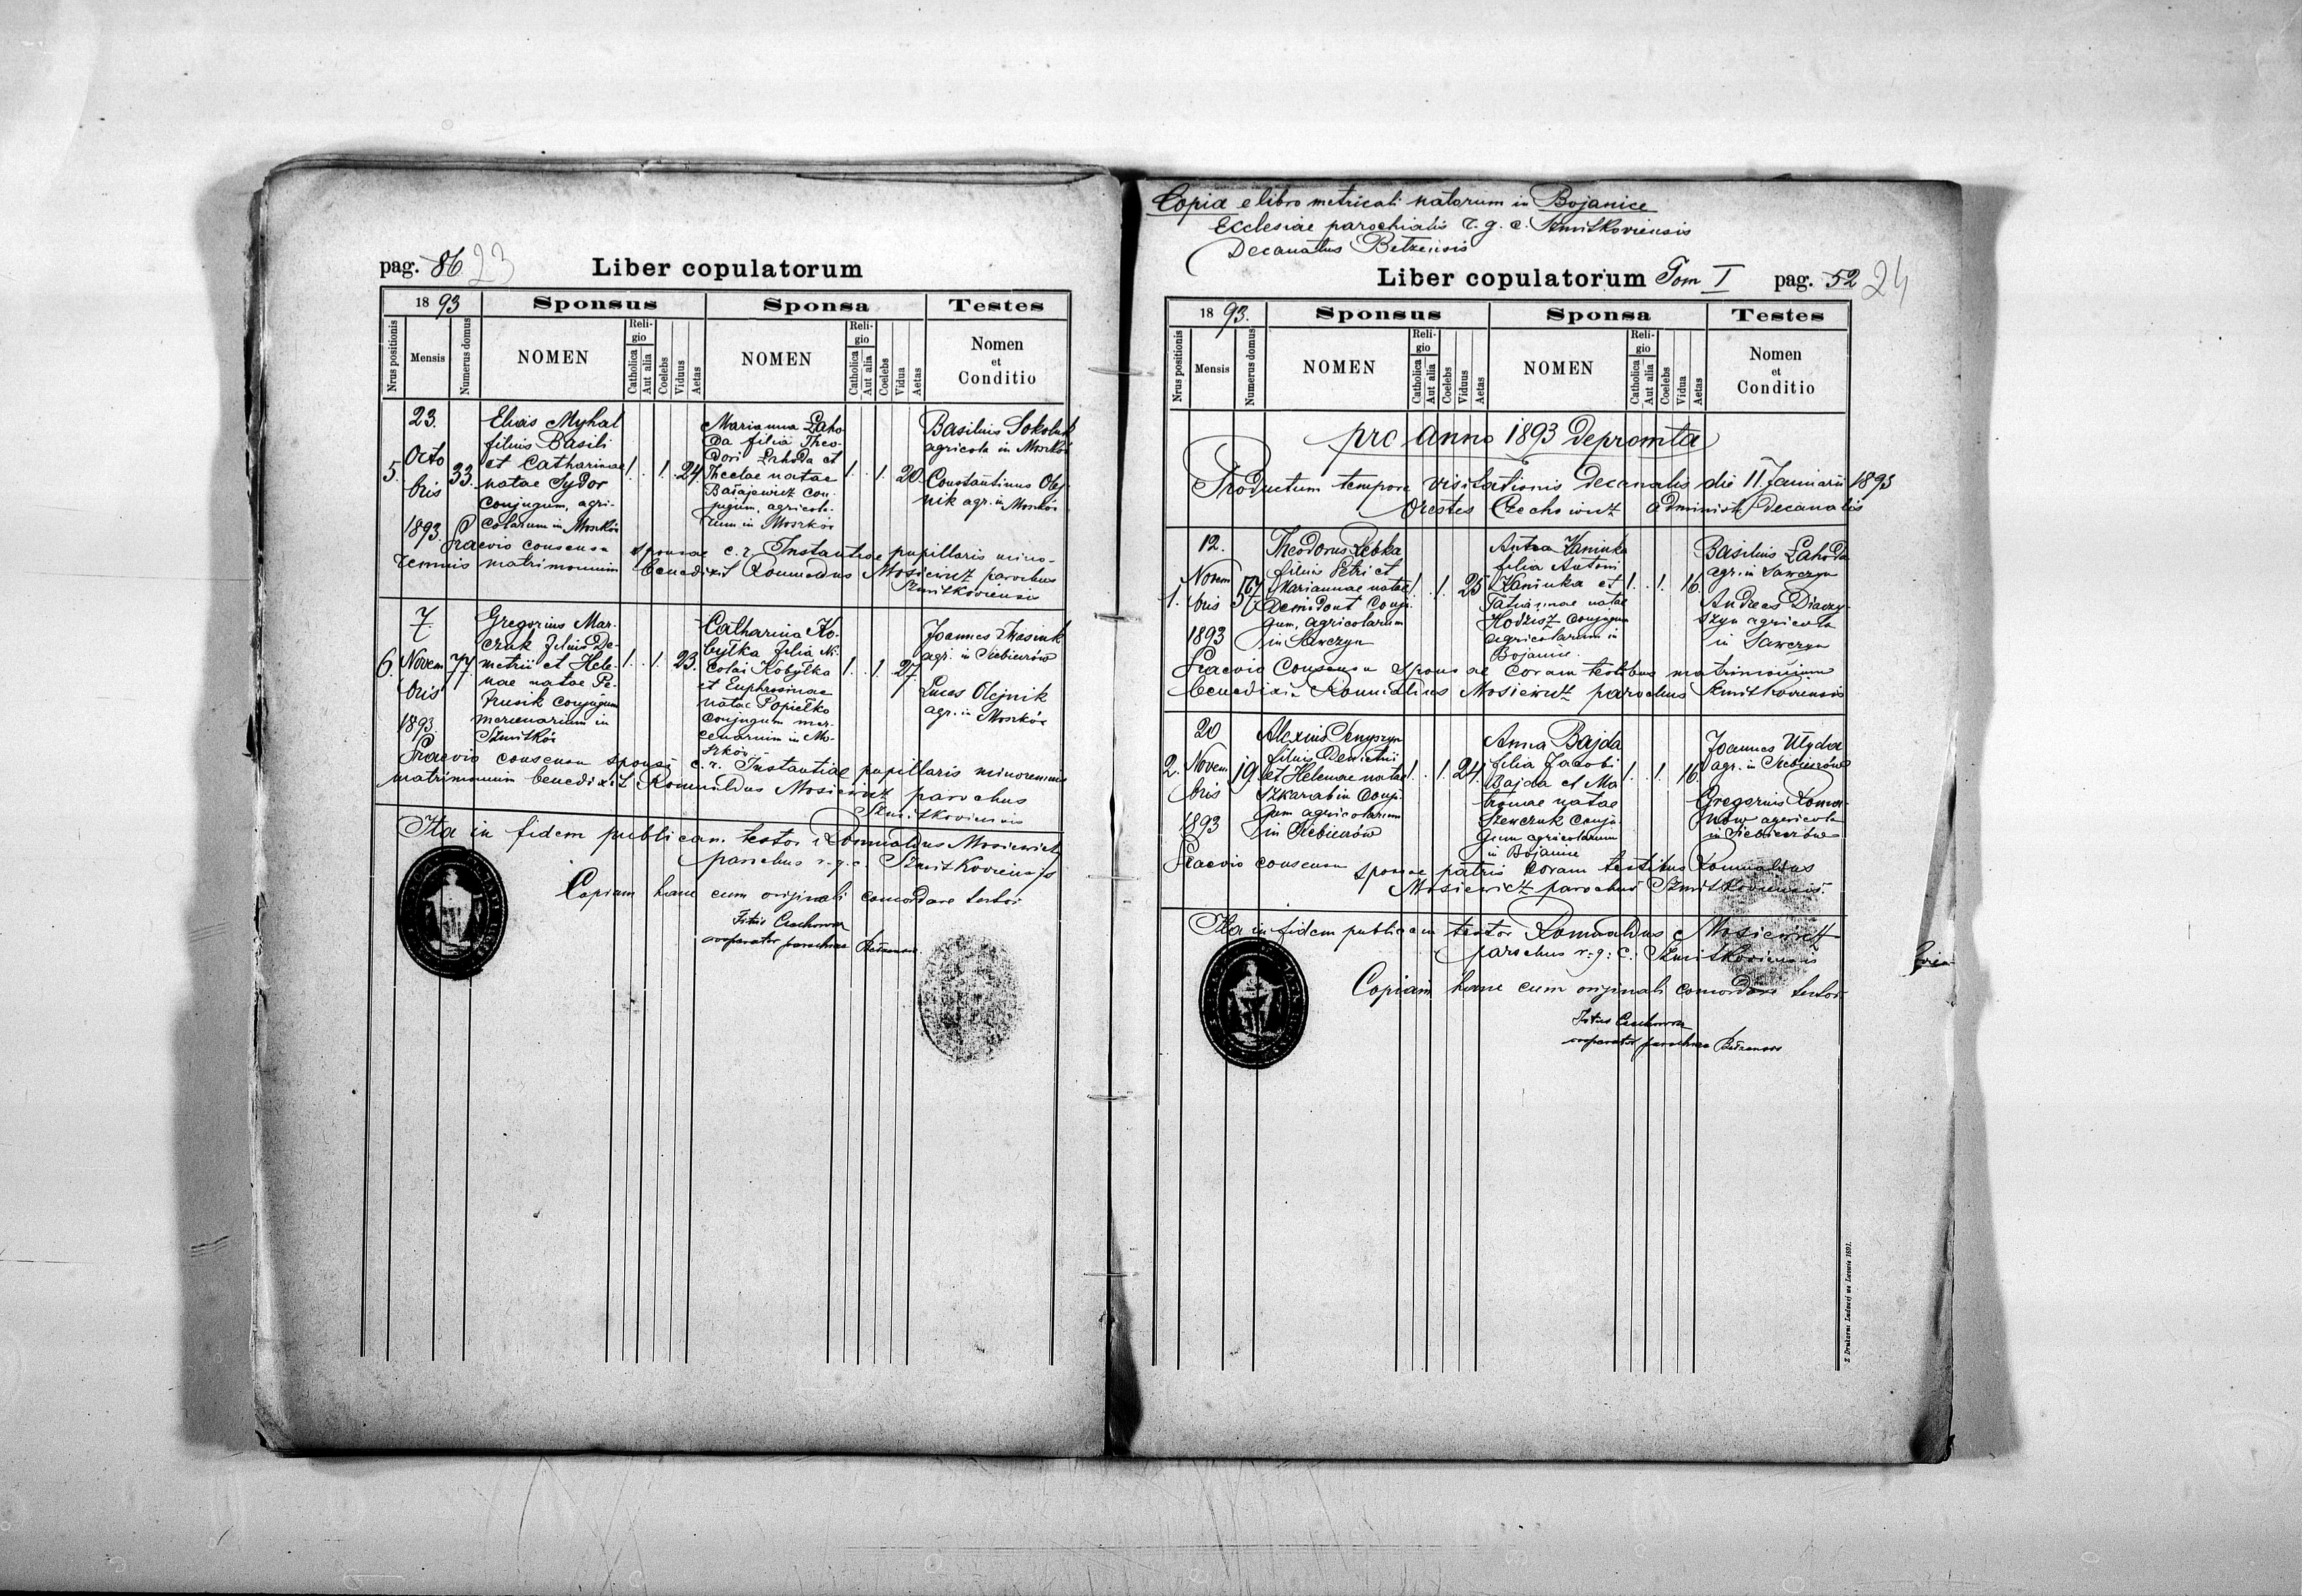 pag. 86 23
Liber copulatorum
1893
Sponsus
Sponsa
Testes
Nrus positionis
Mensis
Numerus domus
NOMEN
Religio
Catholica
Aut alia
Coelebs
Viduus
Aetas
NOMEN
Religio
Catholica
Aut alia
Coelebs
Vidua
Aetas
Nomen
et
Conditio
5.
23.
Octo
bris
1893.
33.
Elias Myhal
filius Basili
et Catharinae
natae Sydor
conjugum, agri-
colarum in Moszków
1. . 1. 24
Marianna Laho
da filia Theo-
dori Lahoda et
Theclae natae
con-
jugum, agricola-
rum in Moszków
1. . 1. 20.
Basilius Sokoluk
agricola in Moszków
Constantinus Olej
nik agr. in Moszków
Praevio consensu sponsae c. r. Instantiae pupillaris mino-
rennis matrimonium benedixit Romualdus Mosiewicz parochus
Szmitkoviensis
6.
7
Novem
bris
1893.
77.
Gregorius Mar-
czuk filius De-
metrii et Hele-
nae natae Pe-
trusik conjugum
mercenarium in
Szmitków
1. . 1. 23.
Catharina Ko-
byłka filia Ni-
colai Kobyłka
et Euphrosinae
natae Popiełko
conjugum mer-
cenarium in Mo-
szków
1. . 1. 27.
Joannes
agr. in Siebieczów
Lucas Olejnik
agr. in Moszków
Praevio consensu sponsi c. r. Instantiae pupillaris minorennis
matrimonium benedixit Romualdus Mosiewicz parochus
Szmitkoviensis
Ita in fidem publicam testor Romualdus Mosiewicz
parochus r. g. c. Szmitkoviensis
Copiam hanc cum originali concordare testor
cooperator parochiae
Copia e libro metricali natorum in Bojanice
Ecclesiae parochialis r. g. c. Szmitkoviensis
Decanatus Betzensis
Liber copulatorum Tom I pag. 52 24
1893.
Sponsus
Sponsa
Testes
Nrus positionis
Mensis
Numerus domus
NOMEN
Religio
Catholica
Aut alia
Coelebs
Viduus
Aetas
NOMEN
Religio
Catholica
Aut alia
Coelebs
Vidua
Aetas
Nomen
et
Conditio
pro anno 1893 depromta
Productum tempore visitationis decanalis die 11 Januarii 1893
Orestes Czechowicz administ. decanalis
1.
12.
Novem
bris
1893
57
Theodorus Lebka
filius Petri et
Mariannae natae
Demidont conju-
gum, agricolarum
in Sawczyn
1. . 1. 25
Anna Kaninka
filia Antoni
Kaninka et
Tatiannae natae
conjugum
agricolarum in
Bojanice.
1. . 1. 16.
Basilius Lahoda
agr. in Sawczyn
Andreas Diaczy-
szyn agricola
in Sawczyn
Praevio consensu sponsae coram testibus matrimonium
benedixit Romualdus Mosiewicz parochus Szmitkoviensis
2.
20
Novem
bris
1893
19.
Alexius Senyszyn
filius Demetrii
et Helenae natae
Szkarabin conju-
gum agricolarum
in Siebieczów
1. . 1. 24.
Anna Bajda
filia Jacobi
Bajda et Ma
tronae natae
Szewczuk conju-
gum agricolarum
in Bojanice
1. . 1. 16.
Joannes
agr. in Siebieczów
Gregorius Roma-
now agricola
in Siebieczów
Praevio consensu sponsae patris coram testibus Romualdus
Mosiewicz parochus Szmitkoviensis.
Ita in fidem publicam testor Romualdus Mosiewicz
parochus r. g. c. Szmitkoviensis
Copiam hanc cum originali concordare testor
cooperator parochiae
Z Drukarni Ludowej we Lwowie 1891.